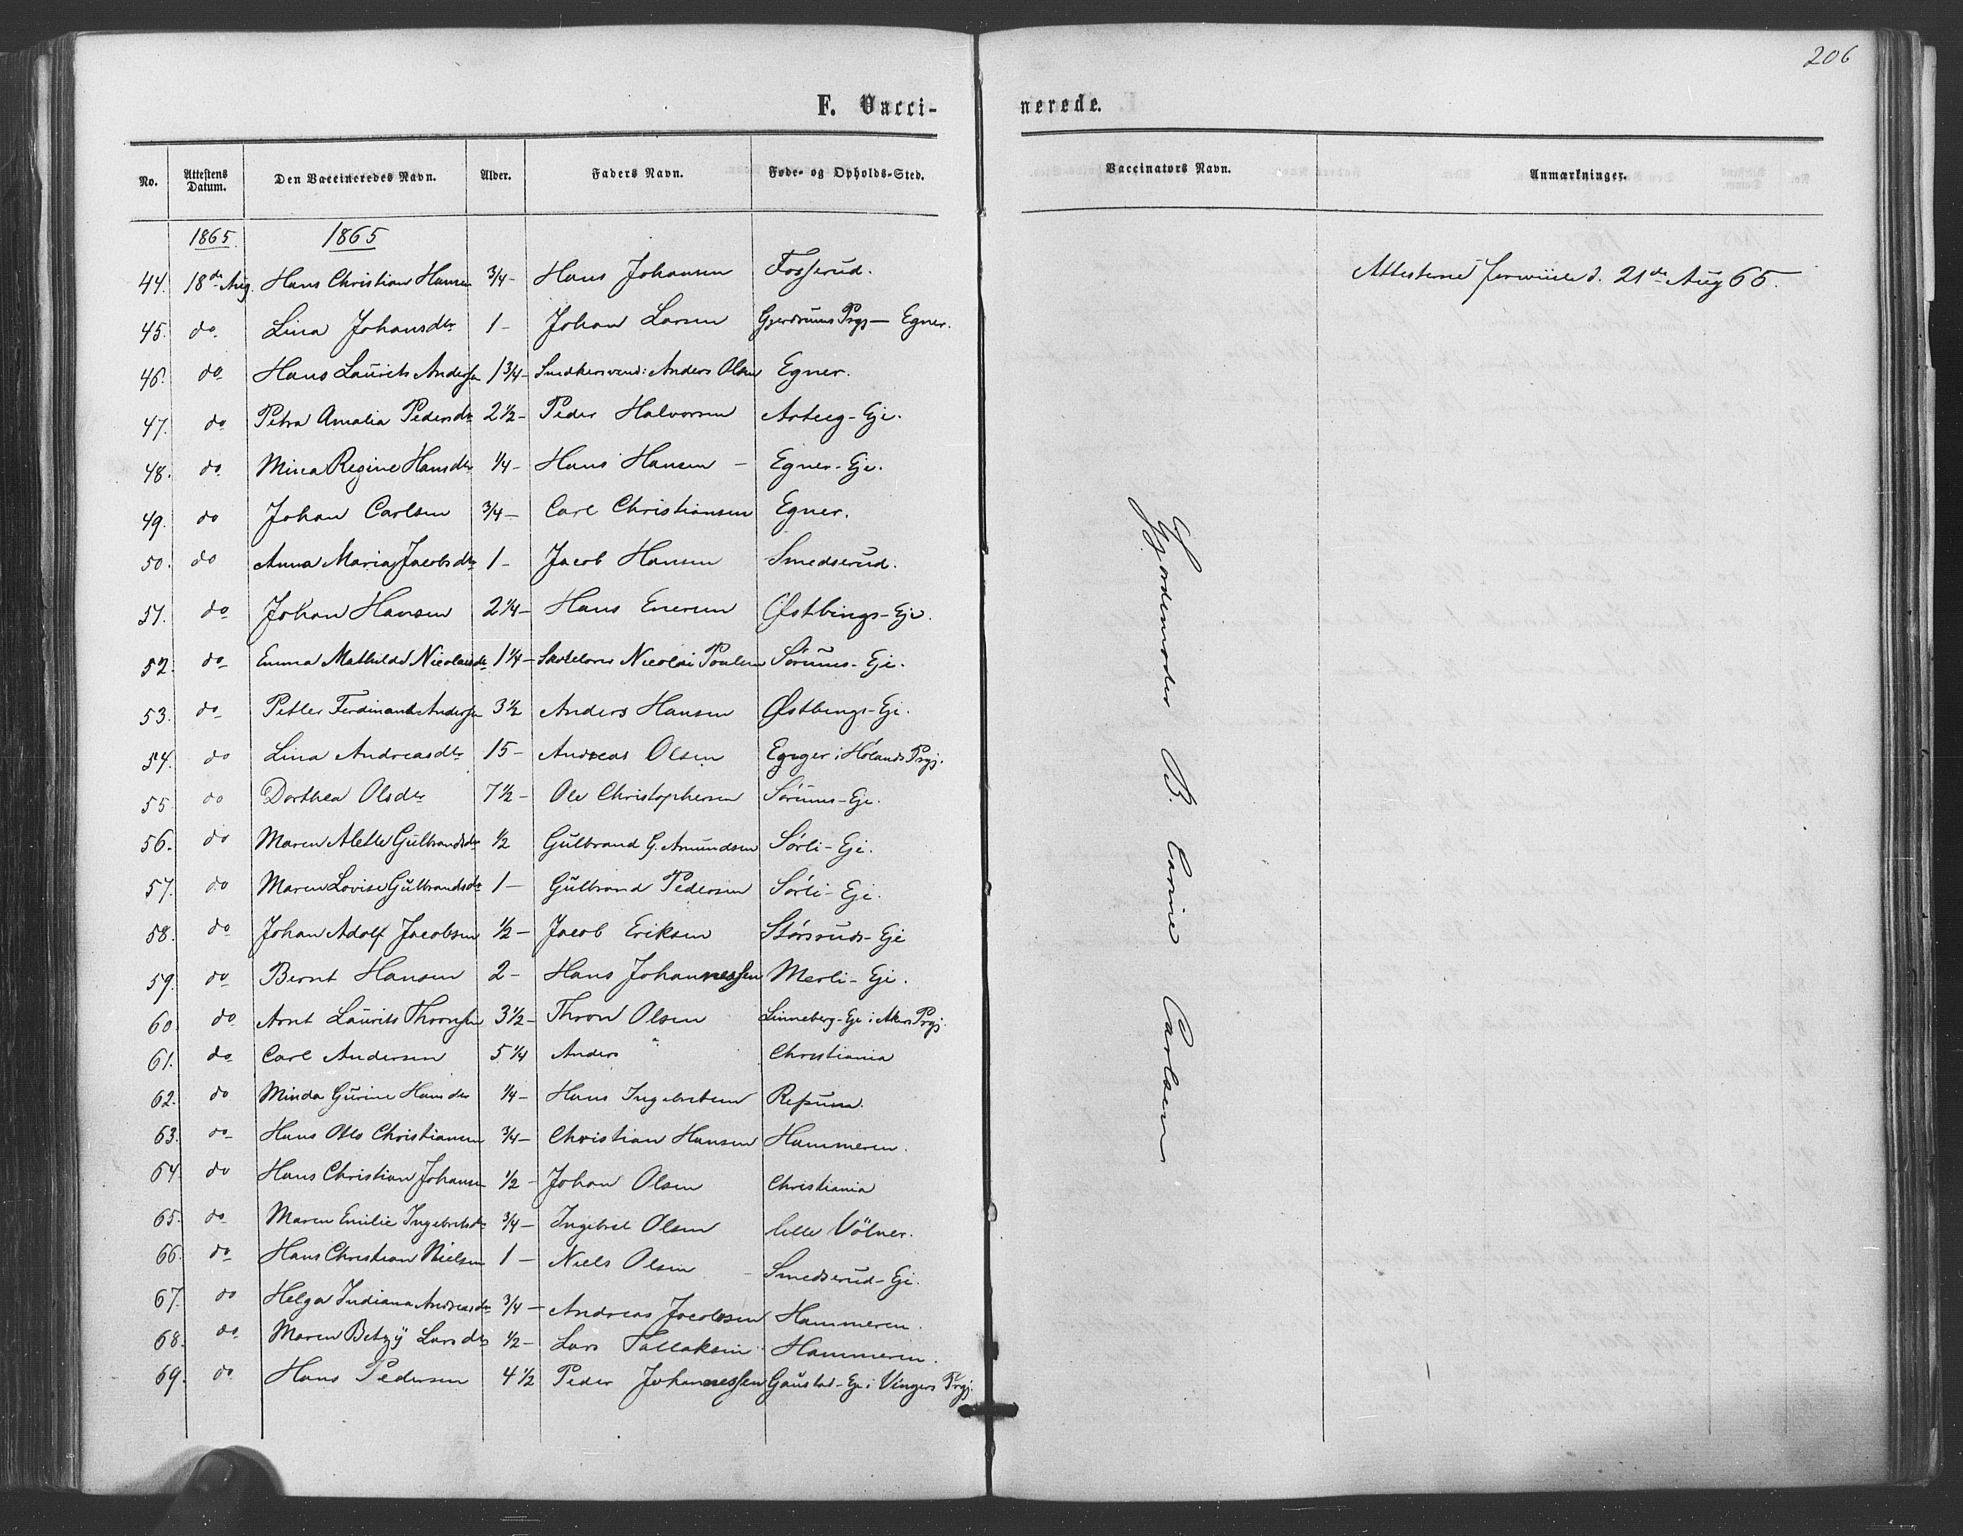 206
F. Vacci-
nerede.
No. Attestens Datum. Den Vaccineredes Navn. Alder. Faders Navn. Føde- og Opholds-Sted. Vaccinators Navn. Anmærkninger.
1865. 1865
44. 18de Aug. Hans Christian Hansen 3/4- Hans Johansen Fosserud. Attesterne d. 21de Aug 65.
45. do. Lina Johansdtr 1- Johan Larsen Gjerdrums Prgj- Egner.
46. do Hans Laurits Andersen 1 3/4- Anders Olsen Egner.
47. do Petra Amalia Pedersdtr 2 1/2- Peder Halvorsen Arteig-Eje.
48. do Mina Regine Hansdtr 1/4- Hans Hansen - Egner-Eje.
49. do Johan Carlsen 3/4- Carl Christiansen Egner.
50. do Anna Maria Jacobsdtr 1- Jacob Hansen Smedserud.
51. do Johan Hansen 2 1/4- Hans Enersen Østbings-Eje.
52. do Emma Mathilde Nicolaisdtr 1 1/4- Nicolai Poulsen Sørums-Eje.
53. do Petter Ferdinand Andersen 3 1/2 Anders Hansen Østbings-Eje.
54. do Lina Andreasdtr 15- Andreas Olsen i Hølands Prgj.
55 do Dorthea Olsdtr 7 1/2- Ole Christophersen Sørums-Eje.
56. do Maren Alette Gulbrandsdtr 1/2 Gulbrand G. Amundsen Sørli-Eje.
57. do Maren Lovise Gulbrandsdtr 1- Gulbrand Pedersen Sørli-Eje.
58. do Johan Adolf Jacobsen 1/2- Jacob Eriksen Størsruds-Eje
59. do Bernt Hansen 2- Hans Johannessen Merli-Eje.
60. do Arnt Laurits Thronsen 3 1/2- Thron Olsen Linneberg-Eje i Akers Prgj.
61. do Carl Andersen 5 1/4 Anders " Christiania
62. do Minda Gurine Hansdtr 1/4- Hans Ingebretsen
63. do Hans Otto Christiansen 3/4- Christian Hansen Hammeren.
64 do Hans Christian Johansen 1/2- Johan Olsen Christiania
65. do Maren Emilie Ingebretsdtr 3/4- Ingebret Olsen lille Vølner.
66. do Hans Christian Nielsen 1- Niels Olsen - Smedserud-Eje.
67. do Helga Indiana Andreasdtr 3/4- Andreas Jacobsen Hammeren.
68. do Maren Betzy Larsdtr 1/2- Lars Tollaksen Hammeren.
69. do Hans Pedersen 4 1/2 Peder Johannessen Gaustad-Eje i Vingers Prgj.
Gjordemoder B. Carine Carlsen